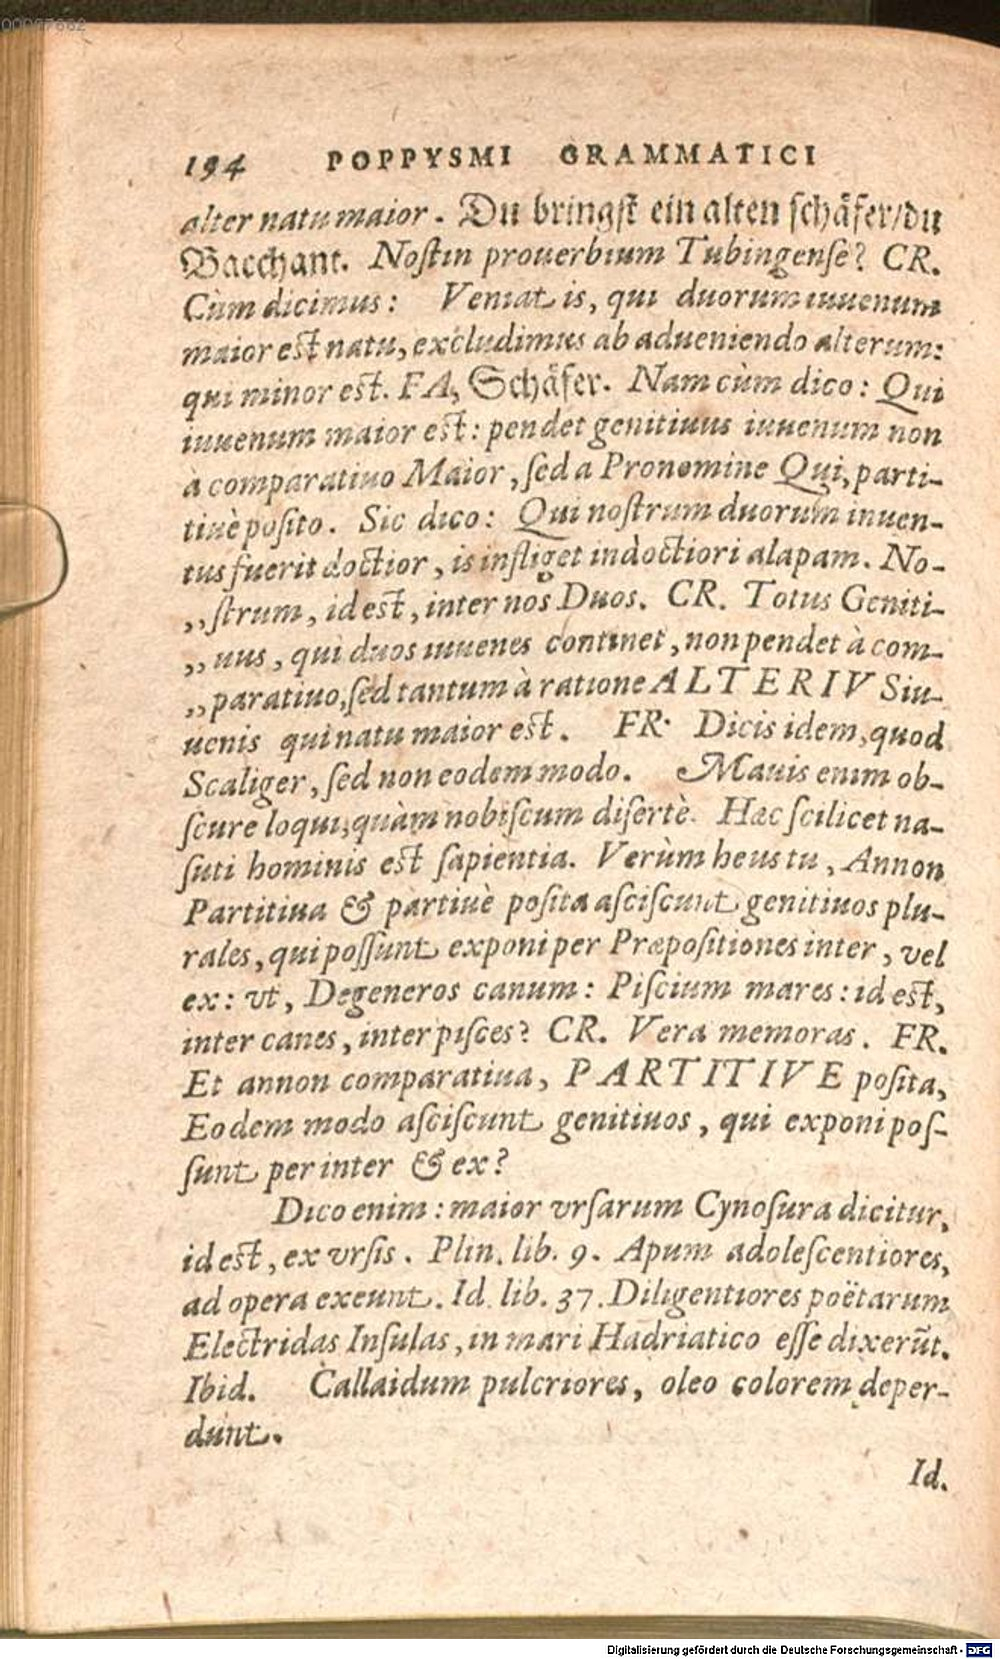 00067682
194 POPPYSMI GRAMMATICI
alter natu maior. Du bringſt ein alten ſchäfer/du
Bacchant. Noſtin prouerbium Tubingenſe? CR.
Cùm dicimus: Veniat is, qui duorum iuuenum
maior eſt natu, excludimus ab adueniendo alterum:
qui minor eſt. FA, Schäfer. Nam cùm dico: Qui
iuuenum maior eſt: pendet genitiuus iuuenum non
à comparatiuo Maior, ſed a Pronomine Qui, parti-
tiuè poſito. Sic dico: Qui noſtrum duorum inuen-
tus fuerit doctior, is infliget indoctiori alapam. No-
,,ſtrum, id eſt, inter nos Duos. CR. Totus Geniti-
,,uus, qui duos iuuenes continet, non pendet à com-
,,paratiuo, ſed tantum à ratione ALTERIV Siu-
uenis qui natu maior eſt. FR. Dicis idem, quod
Scaliger, ſed non eodem modo. Mauis enim ob-
ſcure loqui, quàm nobiſcum diſertè. Hæc ſcilicet na-
ſuti hominis eſt ſapientia. Verùm heus tu, Annon
Partitiua & partiuè poſita aſciſcunt genitiuos plu-
rales, qui poſſunt exponi per Præpoſitiones inter, vel
ex: vt, Degeneros canum: Piſcium mares: id eſt,
inter canes, inter piſces? CR. Vera memoras. FR.
Et annon comparatiua, PARTITIVE poſita,
Eodem modo aſciſcunt genitiuos, qui exponi poſ-
ſunt per inter & ex?
Dico enim: maior vrſarum Cynoſura dicitur,
id eſt, ex vrſis. Plin. lib. 9. Apum adoleſcentiores,
ad opera exeunt. Id. lib. 37. Diligentiores poëtarum
Electridas Inſulas, in mari Hadriatico eſſe dixerũt.
Ibid. Callaidum pulcriores, oleo colorem deper-
dunt.
Id.
Digitalisierung gefördert durch die Deutsche Forschungsgemeinschaft - DFG